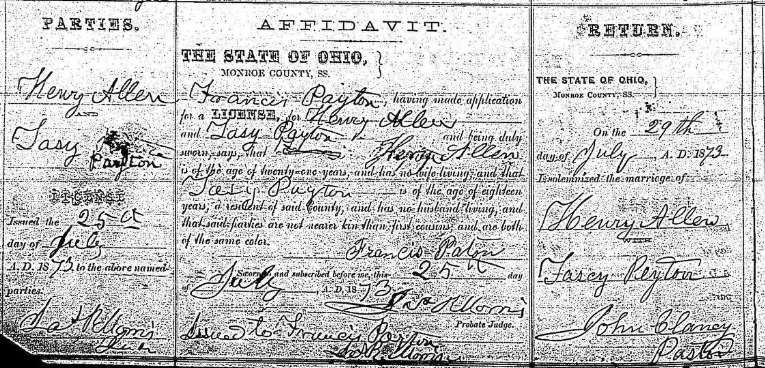 PARTIES.
Henry Allen
Tasy Payton
LICENSE
Issued the 25th
day of July
A. D. 1873, to the above named
parties.
AFFIDAVIT.
THE STATE OF OHIO,
MONROE COUNTY, SS.
Francis Payton, having made application
for a LICENSE, for Henry Allen
and Tasy Payton and being duly
sworn, says, that Henry Allen
is of the age of twenty-one years, and has no wife living, and that
Tasy Payton is of the age of eighteen
years, a resident of said County, and has no husband living, and
that said parties are not nearer kin than first cousins, and are both
of the same color.
Francis Paton
Sworn and subscribed before me, this 25 day
of July A. D. 1873
Probate Judge.
Issued to Francis
RETURN.
THE STATE OF OHIO,
MONROE COUNTY, SS.
On the 29th
day of July A. D. 1873
I solemnized the marriage of
Henry Allen
WITH
Tasey Peyton
John Clancy
Pastor